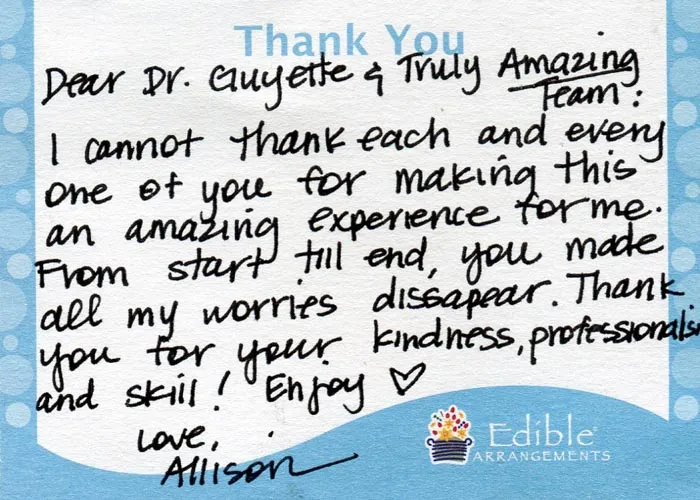 Thank You
Dear Dr. Guyette & Truly Amazing
Team:
I cannot thank each and every
one of you for making this
an amazing experience for me.
From start till end, you made
all my worries dissapear. Thank
you for your kindness, professionalis
and skill! Enjoy ♡
Love,
Allison
Edible
ARRANGEMENTS